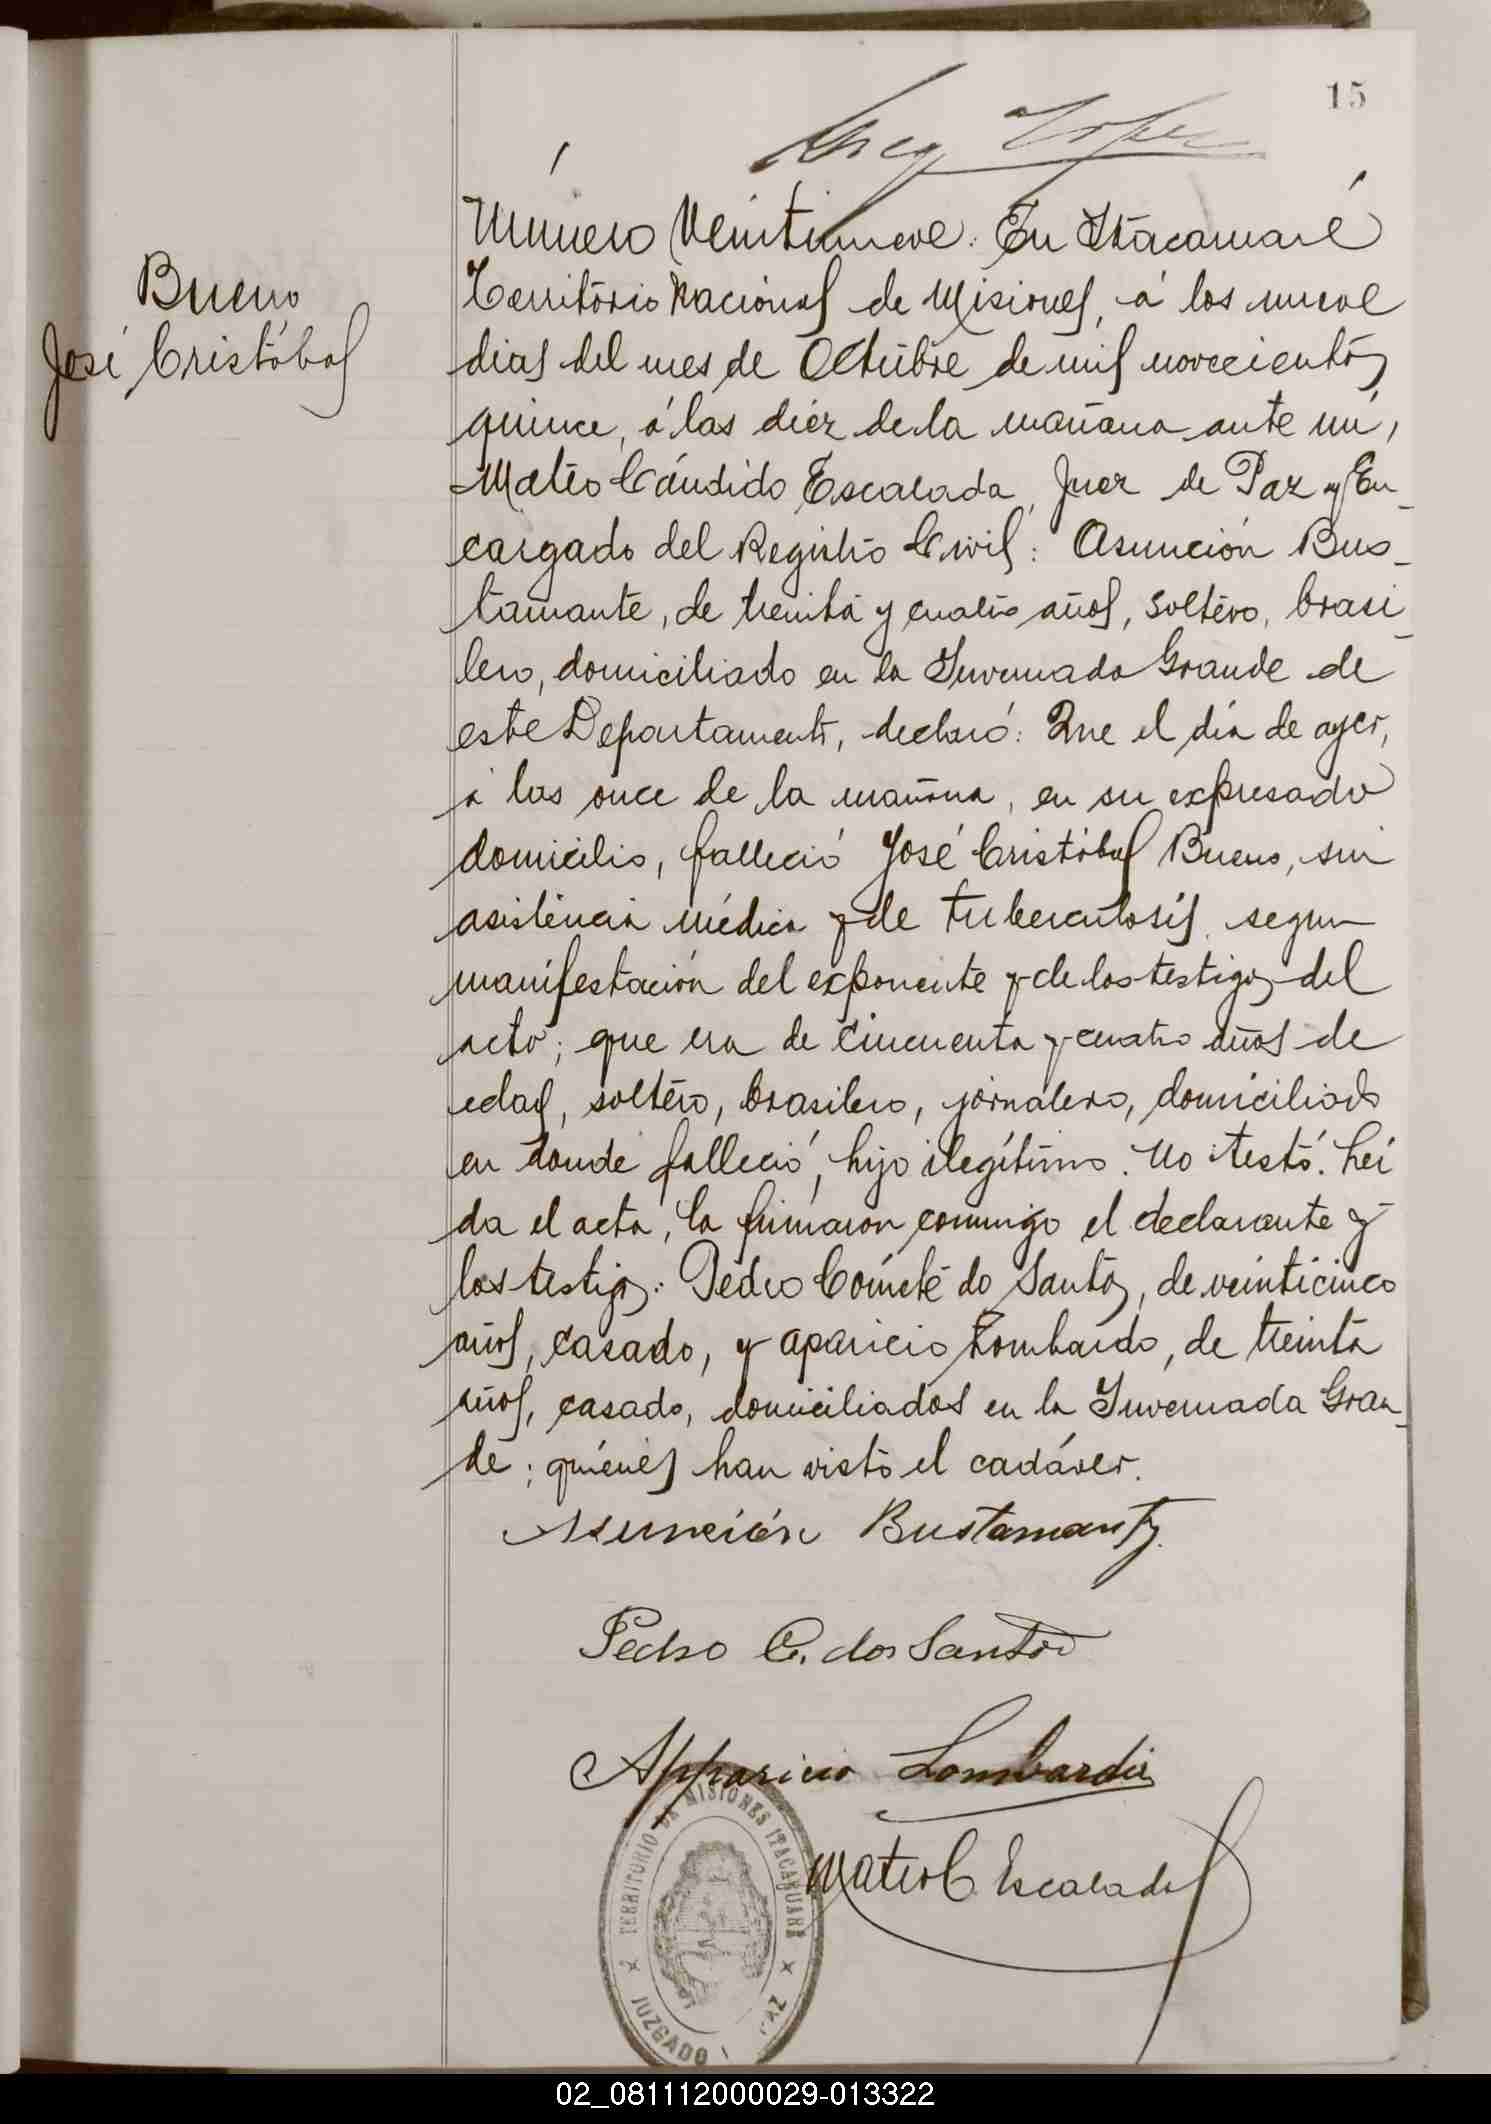 15
Bueno
José Cristóbal
Número Veintinueve: En Itacaruaré
Territorio Nacional de Misiones, á los nueve
dias del mes de Octubre de mil novecientos
quince, á las diez de la mañana ante mí,
Mateo Cándido Escalada, Juez de Paz y En-
cargado del Registro Civil: Asunción Bus-
tamante, de treinta y cuatro años, soltero, brasi-
lero, domiciliado en la Invernada Grande de
este Departamento, declaró: Que el día de ayer,
á las once de la mañana, en su expresado
domicilio, falleció José Cristóbal Bueno, sin
asistencia médica y de tuberculosis, segun
manifestación del exponente y de los testigos del
acto; que era de cincuenta y cuatro años de
edad, soltero, brasilero, jornalero, domiciliado
en donde falleció, hijo ilegítimo. No testó. Leí
da el acta, la firmaron conmigo el declarante y
los testigos: Pedro do Santos, de veinticinco
años, casado, y Aparicio Lombardo, de treinta
años, casado, domiciliados en la Invernada Gran-
de; quiénes han visto el cadáver.
Asunción Bustamante
Pedro C. dos Santos
Apparicio Lombardi
Mateo C. Escalada
TERRITORIO DE MISIONES ITACARUARÉ
JUZGADO PAZ
02_081112000029-013322